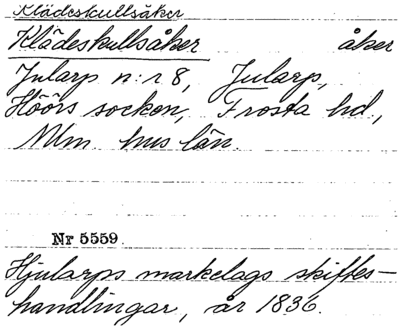 Klädeskullsåker
Klädeskullsåker åker
Jularp n:r 8, Jularp,
Höörs socken, Frosta hd.,
Mlm. hus län.
Nr 5559
Hjularps markelags skiftes-
handlingar, år 1836.